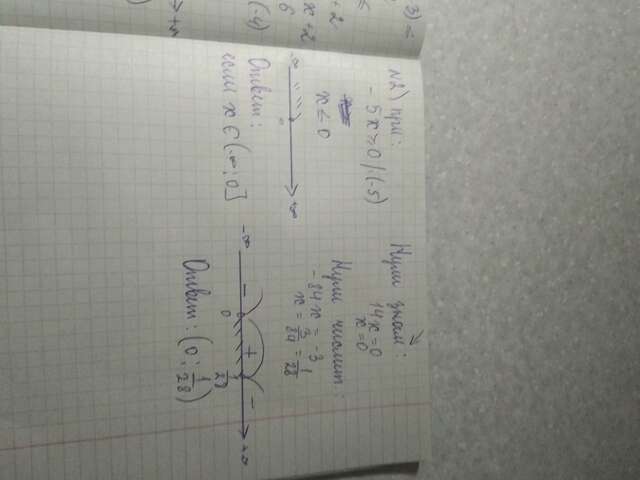 3) -
+ 2
≤
x + 2
6
(-4)
→ +∞
№2) при:
- 5x ≥ 0 | : (-5)
x ≤ 0
-∞ 0 +∞
Ответ:
если x ∈ (-∞; 0]
Нули знам:
14x = 0
x = 0
Нули числит:
- 84x = -3
x = 3/84 = 1/28
- + -
-∞ 0 1/28 +∞
Ответ: (0; 1/28)